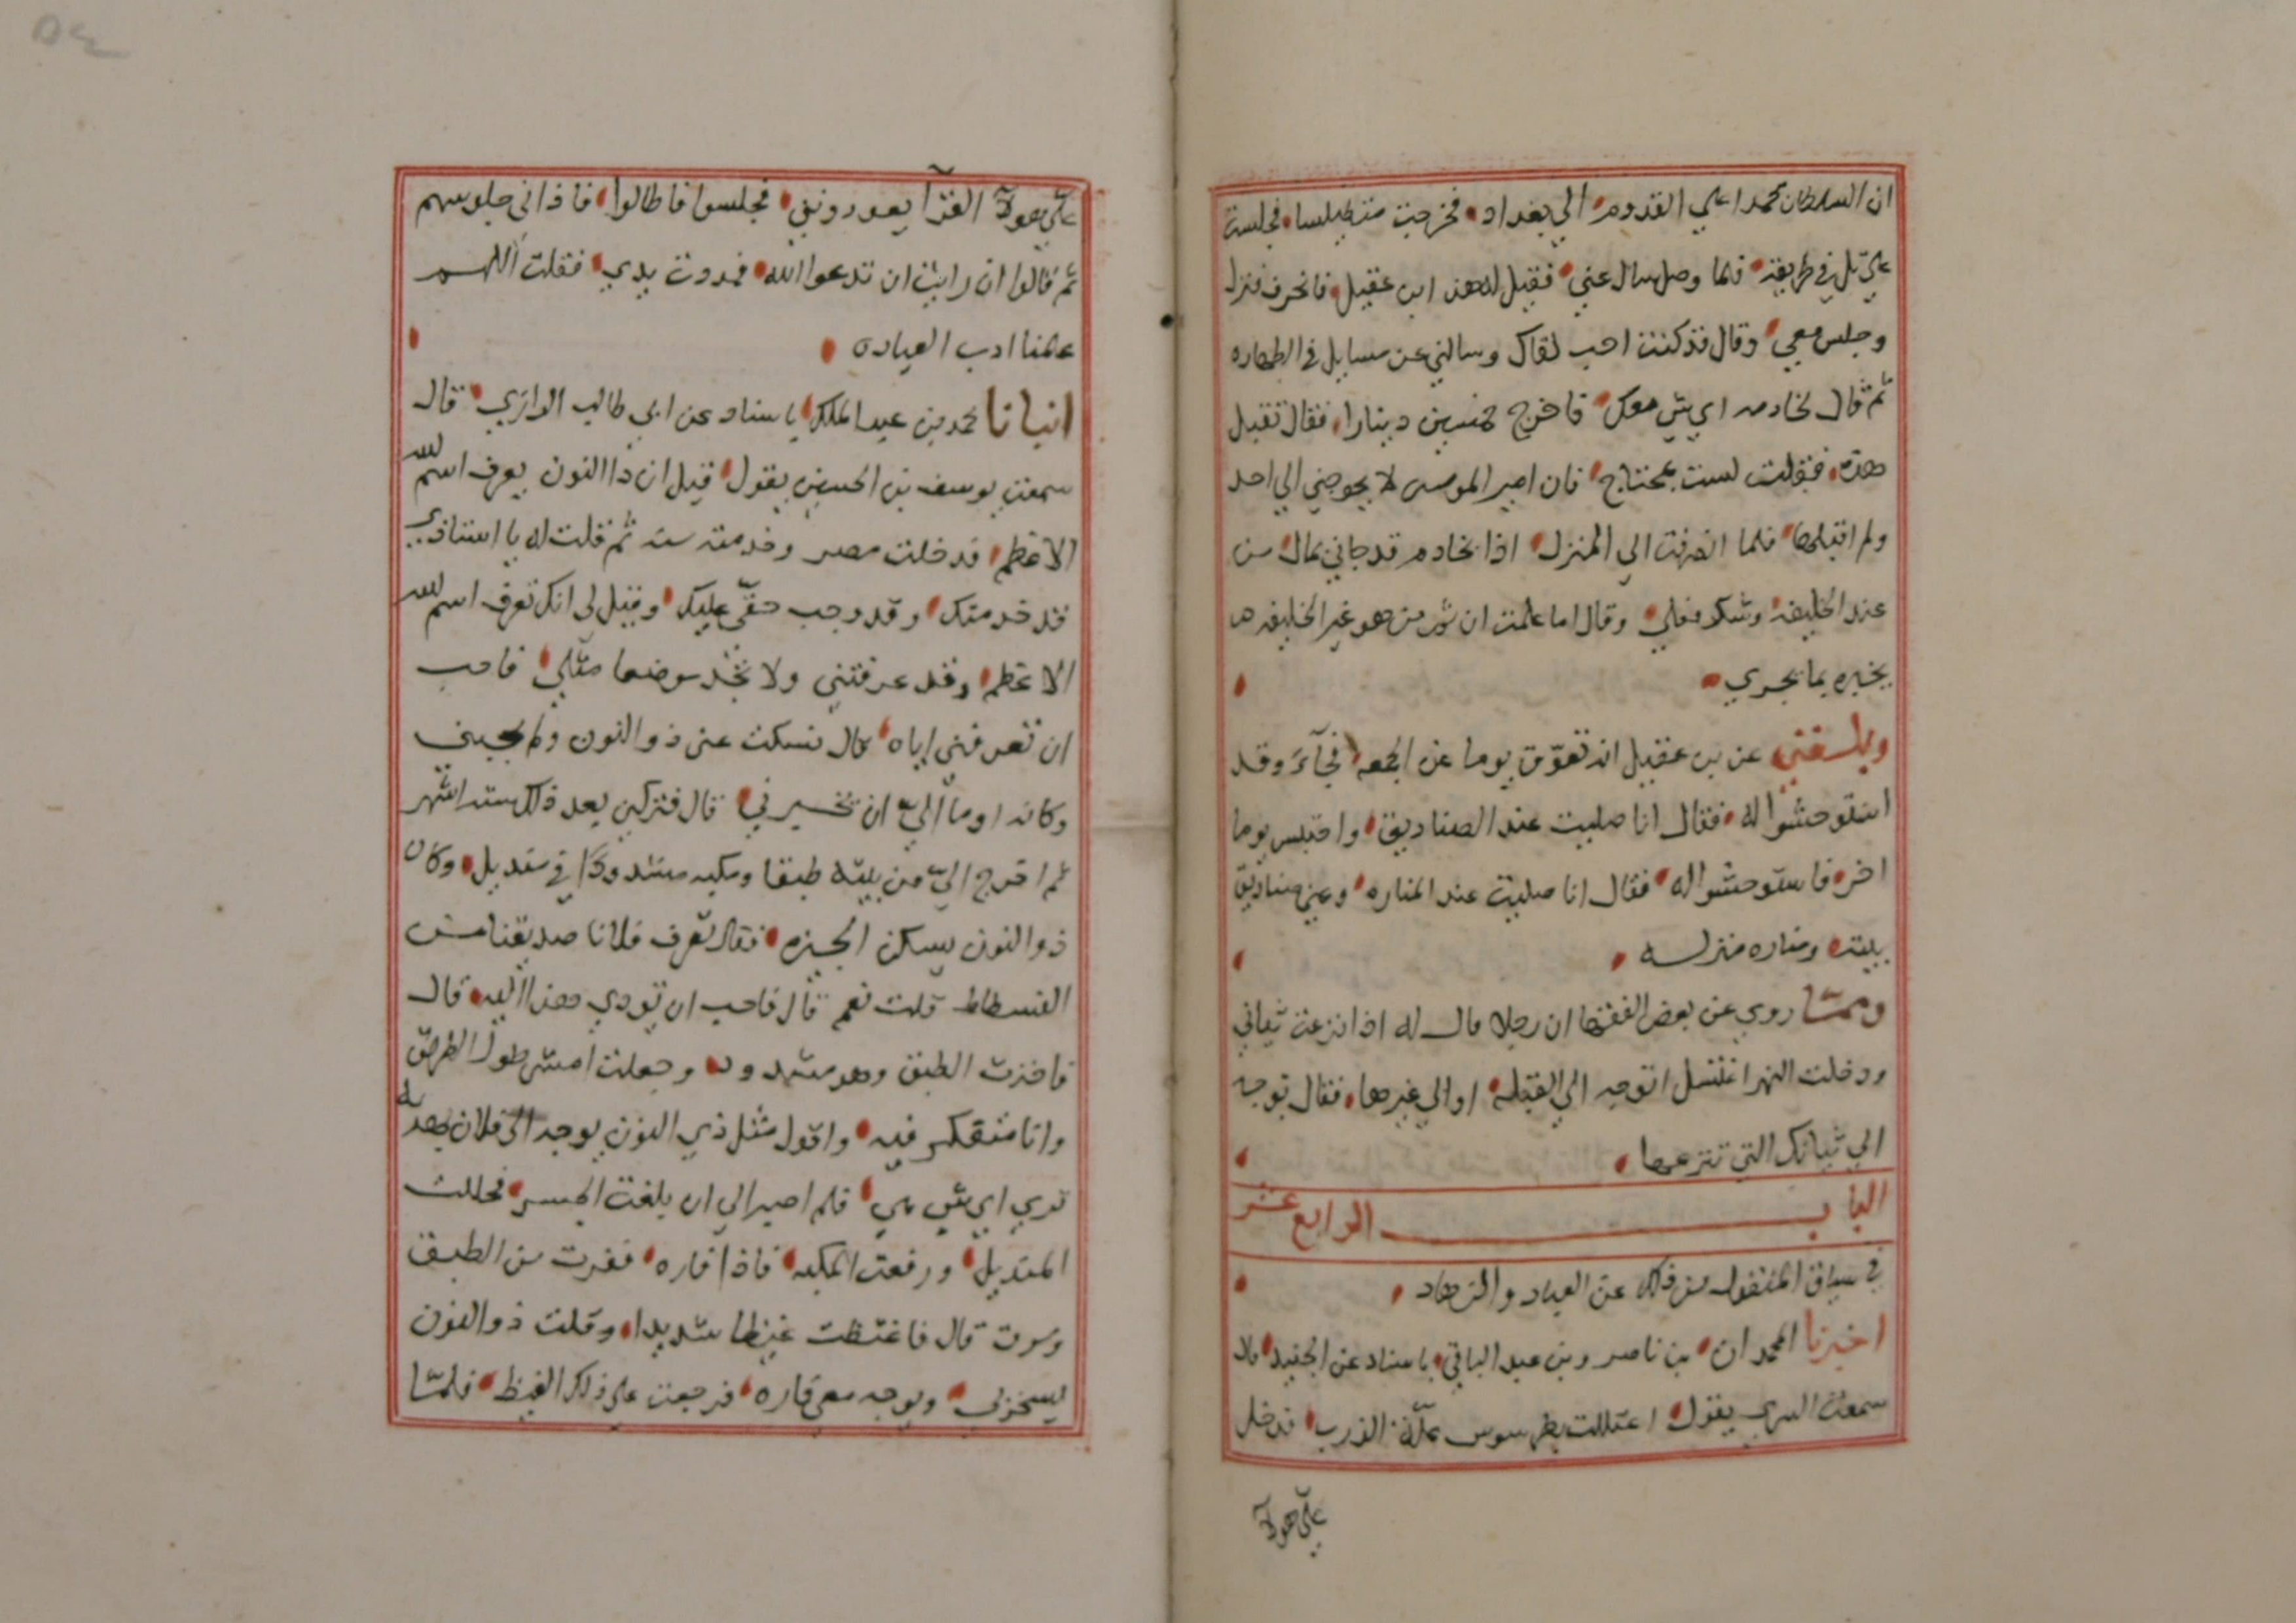 ان السلطان محمدا علي القدوم الي بغداد فخرجت متطيلسا فجلست
علي تل في طريقه فلما وصل سال عني فقيل له هذا ابن عقيل فانحرف فنزل
وجلس معي وقال قد كنت احب لقاك وسالني عن مسايل في الطهاره
ثم قال لخادمه اي شي معك فاخرج خمسين دينارا فقال تقبل
هذه فقلت لست بمحتاج فان امير المومنين لا يحوجني الي احد
ولم اقبلها فلما انصرفت الي المنزل اذا بخادم قد جاني بمال من
عند الخليفه وشكر فعلي وقال اما علمت ان ثم من هو عين الخليفه
يخبره بما يجري
وبلغني عن بن عقيل انه تعوق يوما عن الجمعه فجآء وقد
استوحشوا له فقال انا صليت عند الصناديق واحتبس يوما
اخر فاستوحشوا له فقال انا صليت عند المناره وعني صناديق
بيته ومناره منزله
ومما روي عن بعض الفقها ان رجلا قال له اذا نزعت ثيابي
ودخلت النهر اغتسل اتوجه الي القبله او الي غيرها فقال توجه
الي ثيابك التي تنزعها
الباب الرابع عشر
في سياق المنقول من ذلك عن العباد والزهاد
اخبرنا المحمدان بن ناصر وبن عبد الباقي باسناد عن الجنيد قال
سمعت السري يقول اعتللت بطرسوس علة الذرب فدخل
علي هولآ
علي هولآ القرآ يعودونني فجلسوا فاطالوا فاذاني جلوسهم
ثم قالوا ان رايت ان تدعوا الله فمددت يدي فقلت اللهم
علمنا ادب العياده
انبانا محمد بن عبد الملك باسناد عن ابي طالب الرازي قال
سمعت يوسف بن الحسين يقول قيل ان ذا النون يعرف اسم الله
الاعظم فدخلت مصر وخدمته سنه ثم قلت له يا استاذي
قد خدمتك وقد وجب حقي عليك وقيل لي انك تعرف اسم الله
الاعظم وقد عرفتني ولا تجد موضعا مثلي فاحب
ان تعرفني اياه قال فسكت عني ذو النون ولم يجبني
وكانه اوما اليّ ان يخبرني قال فتركني بعد ذلك سته اشهر
ثم اخرج اليّ من بيته طبقا ومكبه مشدودا في منديل وكان
ذو النون يسكن الجيزه فقال تعرف فلانا صديقنا من
الفسطاط قلت نعم قال فاحب ان تودي هذا اليه قال
فاخذت الطبق وهو مشدود وجعلت امشي طول الطريق
وانا متفكر فيه واقول مثل ذي النون يوجه الي فلان بهديه
تري اي شي هي فلم اصبر الي ان بلغت الجسر فحللت
المنديل ورفعت المكبه فاذا فاره فقرت من الطبق
ومرت قال فاغتظت غيظا شديدا وقلت ذو النون
يسخر بي ويوجه معي فاره فرجعت علي ذلك الغيظ فلما